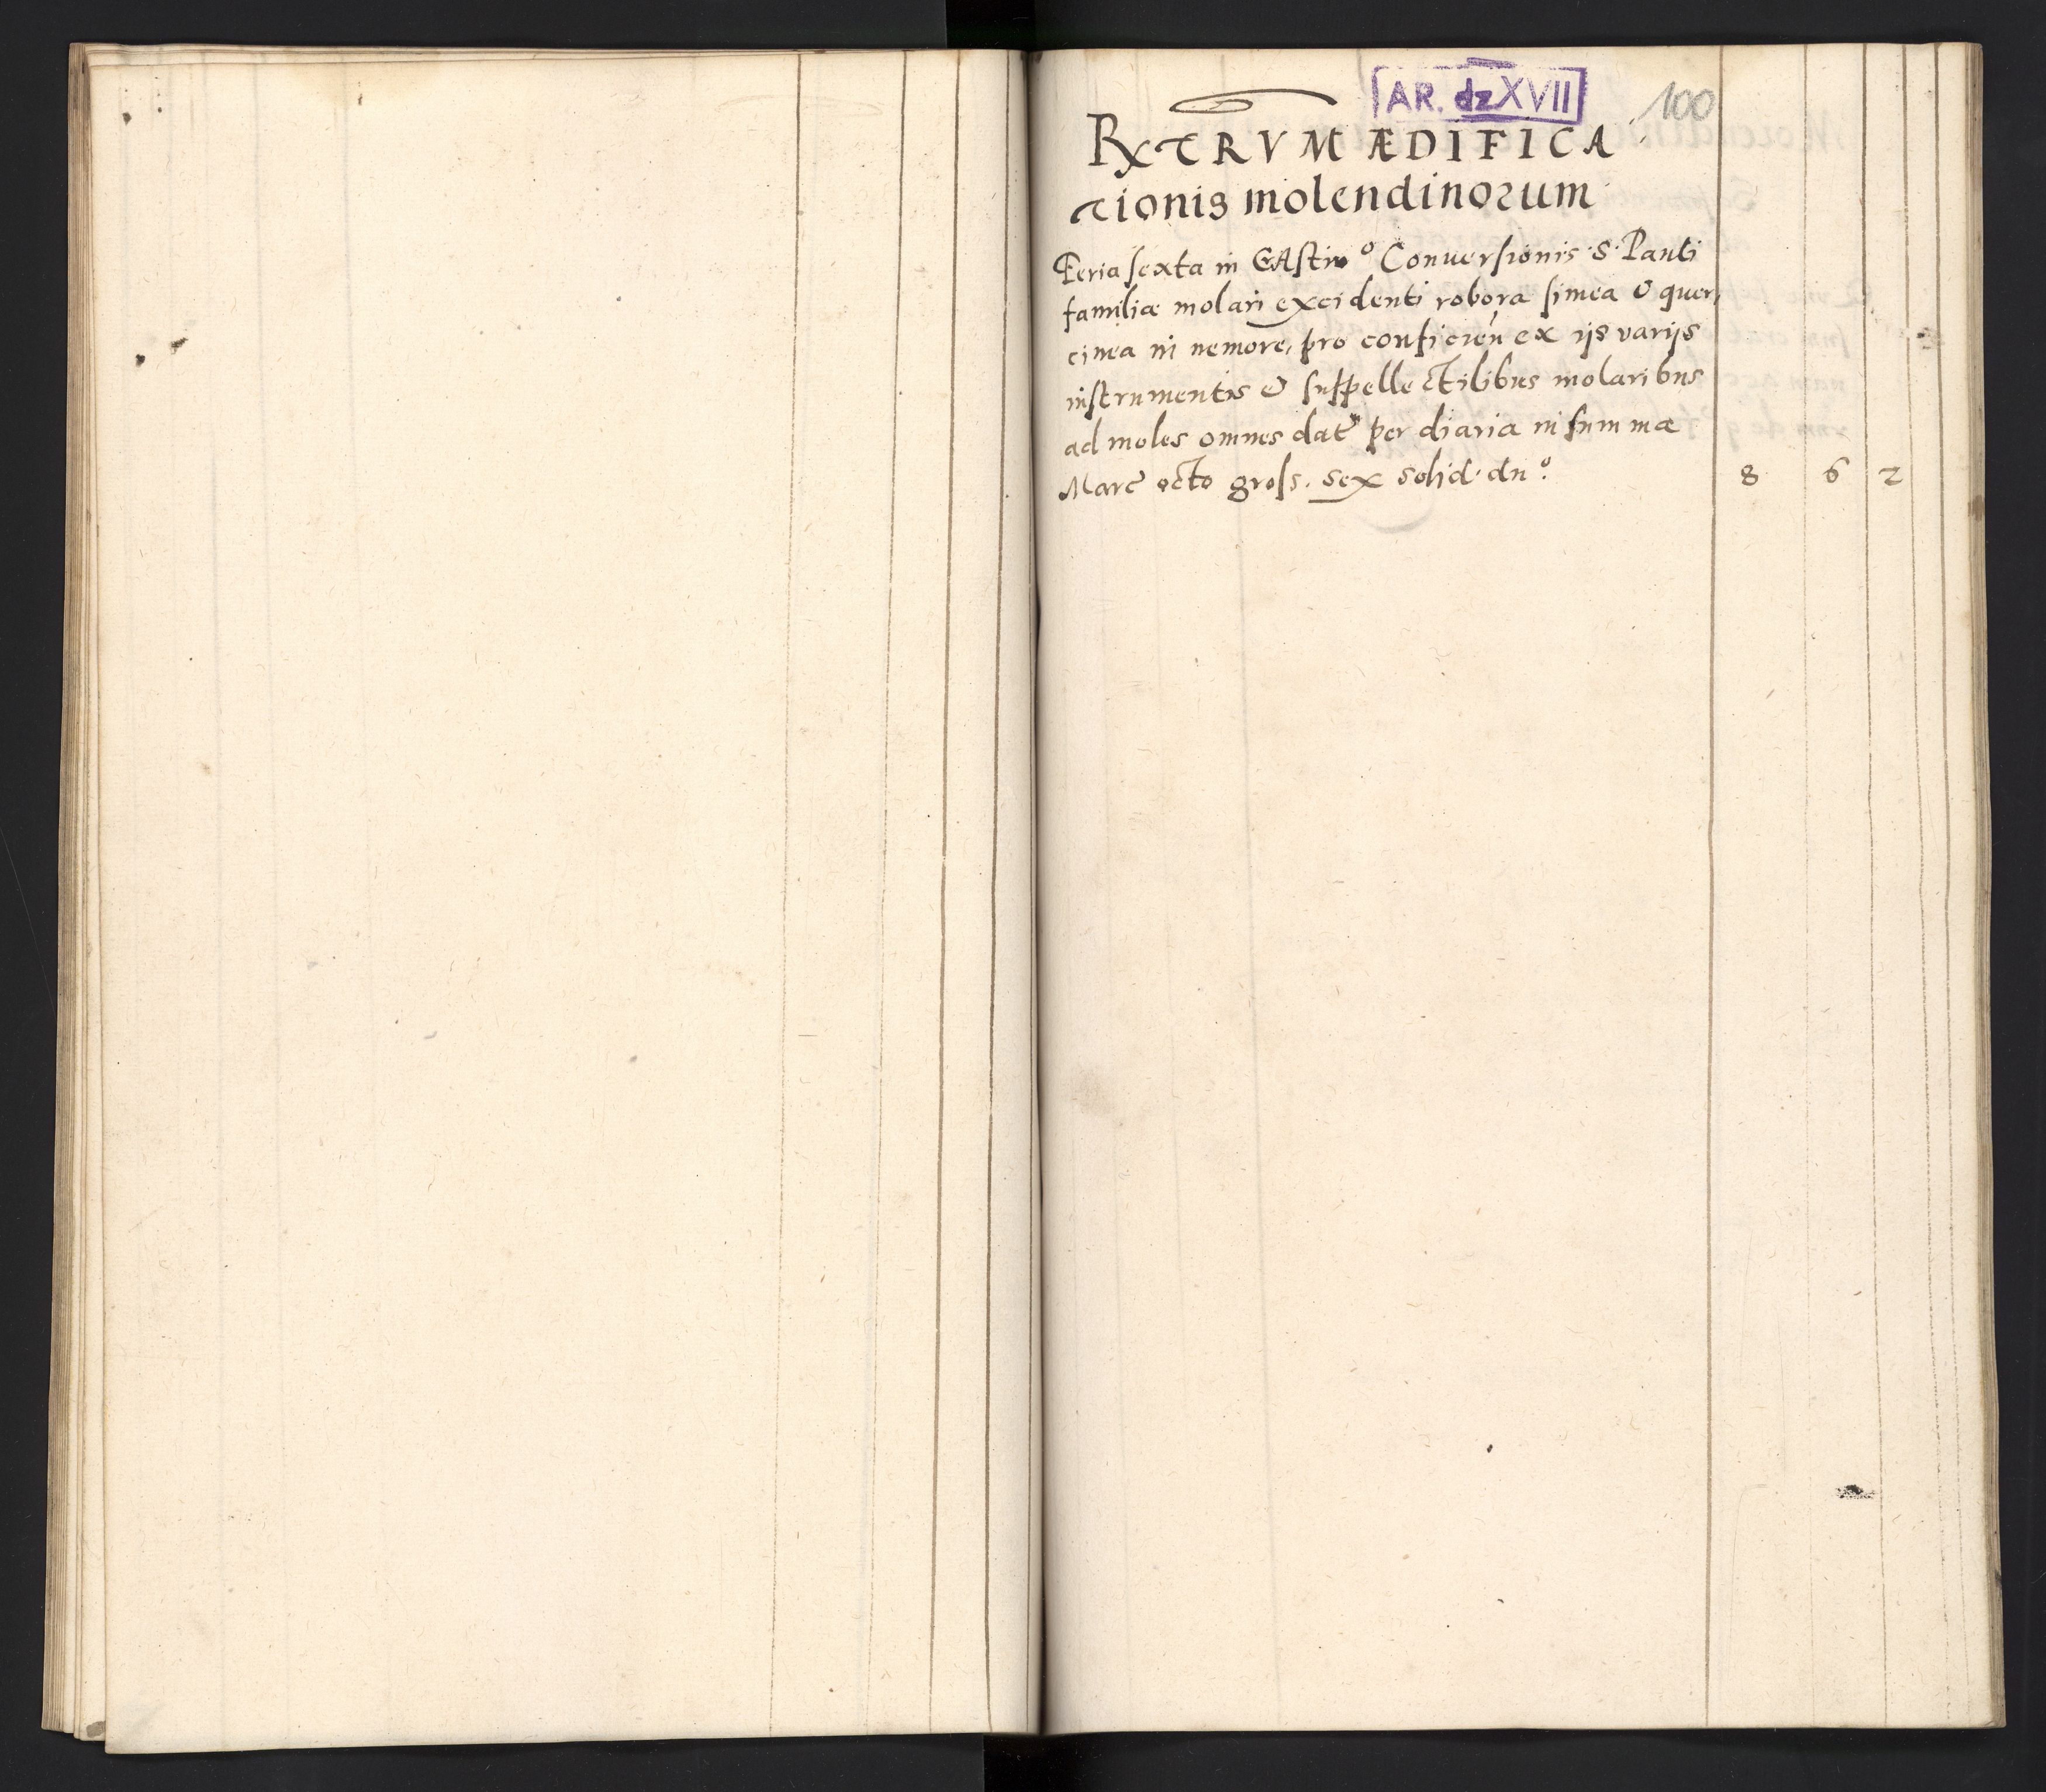 AR. dz XVII
100
RXTRVM ÆDIFICA
tionis molendinorum
Feria sexta in CrAstino Conuersionis S. Pauli
familiæ molari excidenti robora fimea & quer,
cinea in nemore, pro conficien ex ijs varijs
instrumentis & suppellectilibus molaribus
ad moles omnes dat per diaria in summæ
Marc octo gross. sex solid. duo 8 6 2